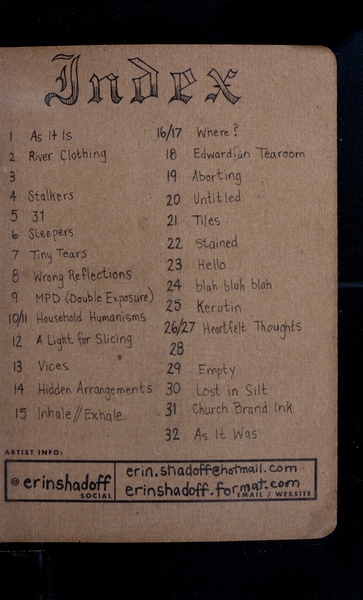 Index
1 As It Is
2 River Clothing
3
4 Stalkers
5 31
6 Sleepers
7 Tiny Tears
8 Wrong Reflections
9 MPD (Double Exposure)
10/11 Household Humanisms
12 A Light for Slicing
13 Vices
14 Hidden Arrangements
15 Inhale//Exhale
16/17 Where?
18 Edwardian Tearoom
19 Aborting
20 Untitled
21 Tiles
22 Stained
23 Hello
24 blah blah blah
25 Keratin
26/27 Heartfelt Thoughts
28
29 Empty
30 Lost in Silt
31 Church Brand Ink
32 As It Was
ARTIST INFO:
@erinshadoff
SOCIAL
erin.shadoff@hotmail.com
erinshadoff.format.com
EMAIL / WEBSITE